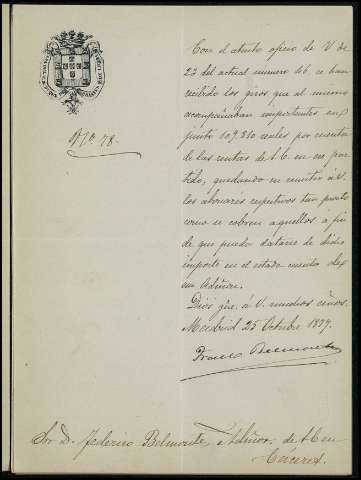 Nº 78.
Con el atento oficio de V de
23 del actual numero 46, se han
recibido los giros que al mismo
acompañaban importantes en
junto 109.310 reales por cuenta
de las rentas de S. E. en ese par
tido, quedando en remitir á V.
los abonarés respectivos tan pronto
como se cobren aquellos á fin
de que pueda datarse de dicho
importe en el estado cuenta de
su Admon.
Dios gue. á V. muchos años.
Madrid 25 Octubre 1879.
Belmonte
Sor. D. Federico Belmonte Admor. de S. E. en
Cáceres.